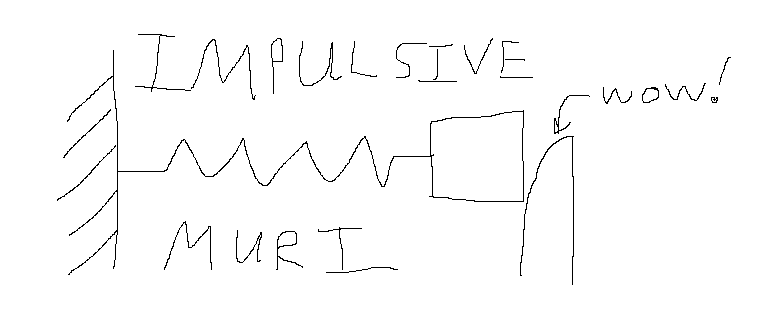 IMPULSIVE
WOW!
MURI